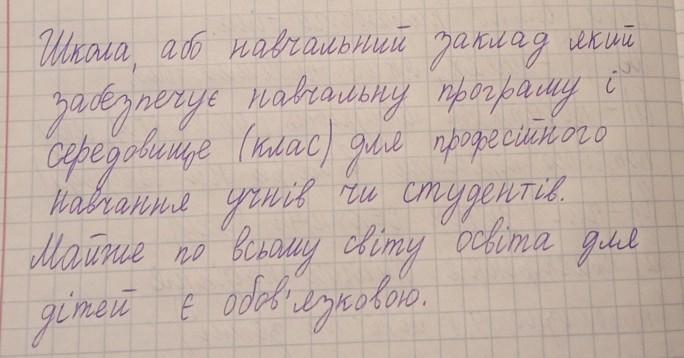 Школа, або навчальний заклад який
забезпечує навчальну програму і
середовище (клас) для професійного
навчання учнів чи студентів.
Майже по всьому світу освіта для
дітей є обов'язковою.